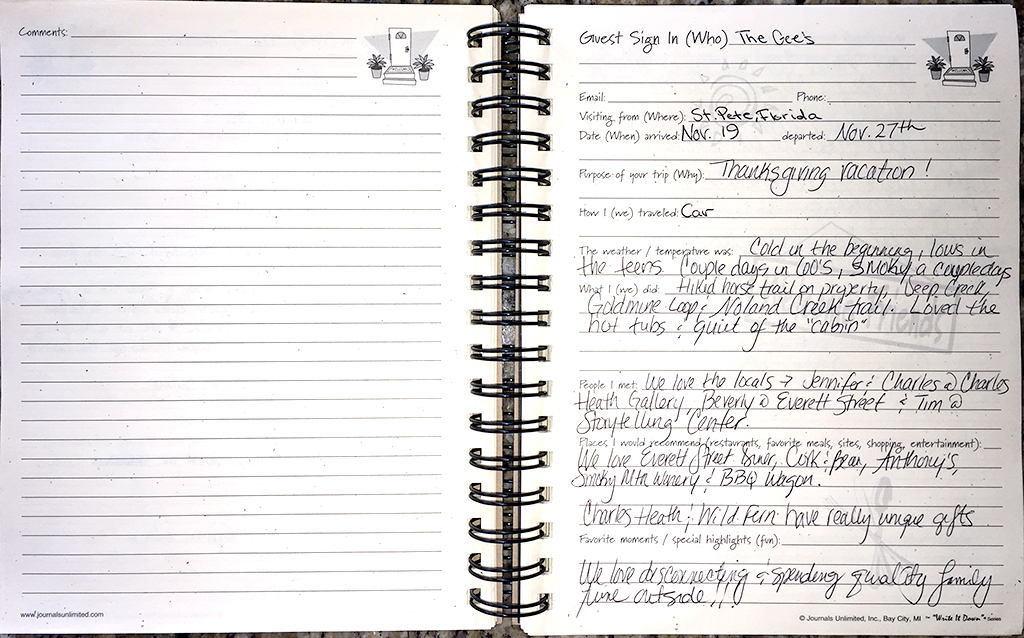 Comments:
WELCOME
www.journalsunlimited.com
Guest Sign In (Who) The Gee's
Email: Phone:
Visiting from (Where): St. Pete, Florida
Date (When) arrived: Nov. 19 departed: Nov. 27th
Purpose of your trip (Why): Thanksgiving vacation!
How I (we) traveled: Car
The weather / temperature was: Cold in the beginning, lows in
the teens. Couple days in 60's, smoky a couple days
What I (we) did: Hikid horse trail on property, Deep Creek,
Goldmine Loop & Noland Creek trail. Loved the
hot tubs & quiet of the "cabin"
People I met: We love the locals → Jennifer & Charles @ Charles
Heath Gallery, Beverly @ Everett Street & Tim @
Storytelling Center.
Places I would recommend (restaurants, favorite meals, sites, shopping, entertainment):
We love Everett Street Diner, Cork & Bean, Anthony's,
Smoky Mtn Winery & BBQ Wagon.
Charles Heath & Wild Fern have really unique gifts
Favorite moments / special highlights (fun):
We love disconnecting & spending quality family
time outside!!
© Journals Unlimited, Inc., Bay City, MI ~ "Write It Down"® Series